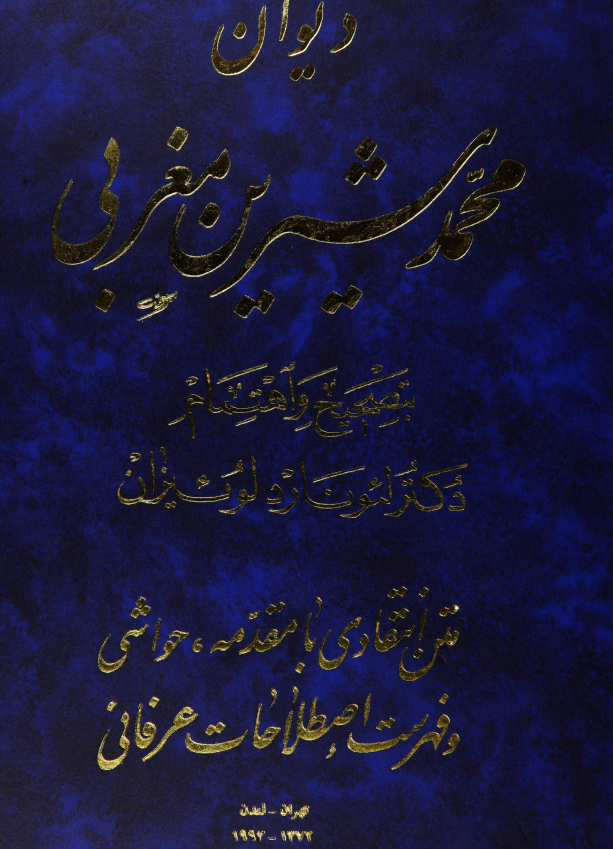 دیوان
محمّد شیرین مغربی
بتصحیح و اهتمام
دکتر لئونارد لوئیزان
متن انتقادی با مقدّمه، حواشی
و فهرست اصطلاحات عرفانی
تهران - لندن
۱۳۷۲ - ۱۹۹۳